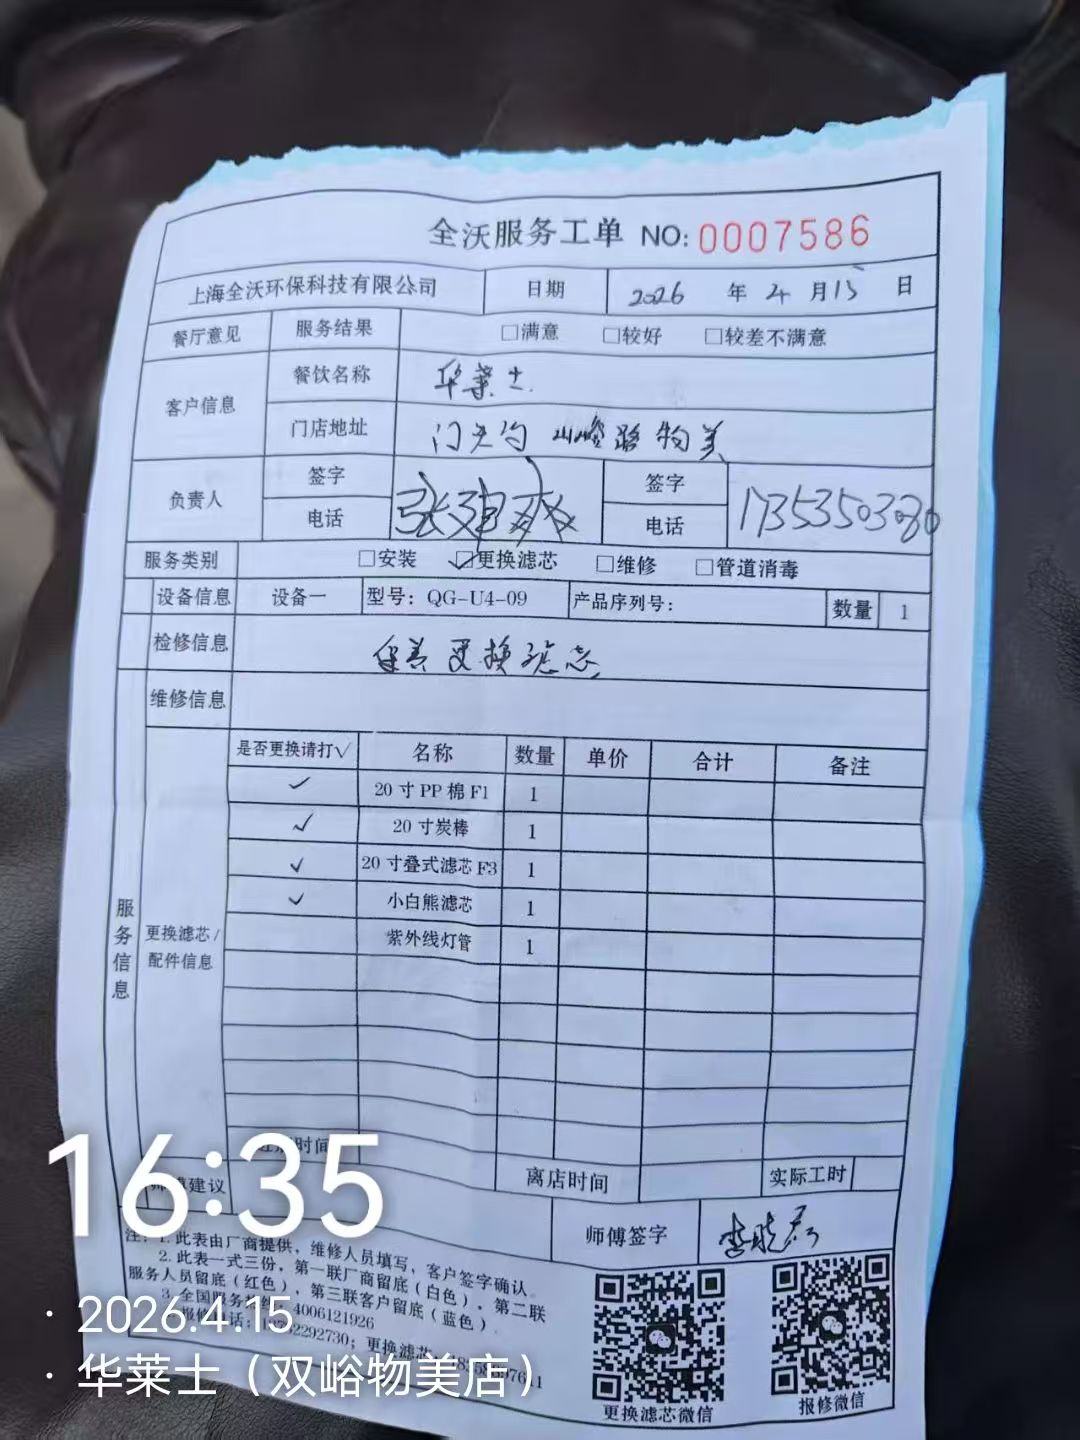 全沃服务工单 NO: 0007586
上海全沃环保科技有限公司 日期 2026 年 4 月 15 日
餐厅意见 服务结果 □满意 □较好 □较差不满意
客户信息 餐饮名称 华莱士
门店地址 门头沟 峪路物美
负责人 签字 签字
电话 电话 17353503080
服务类别 □安装 ☑更换滤芯 □维修 □管道消毒
设备信息 设备一 型号: QG-U4-09 产品序列号: 数量 1
检修信息 保养更换滤芯
维修信息
服务信息
更换滤芯/配件信息
是否更换请打√ 名称 数量 单价 合计 备注
✓ 20寸PP棉F1 1
✓ 20寸炭棒 1
✓ 20寸叠式滤芯F3 1
✓ 小白熊滤芯 1
紫外线灯管 1
时间 离店时间 实际工时
建议 师傅签字
注: 1.此表由厂商提供，维修人员填写，客户签字确认。
2.此表一式三份，第一联厂商留底（白色），第二联
服务人员留底（红色），第三联客户留底（蓝色）.
3.全国服务 4006121926
2292730; 更换滤芯
更换滤芯微信 报修微信
16:35
· 2026.4.15
· 华莱士（双峪物美店）